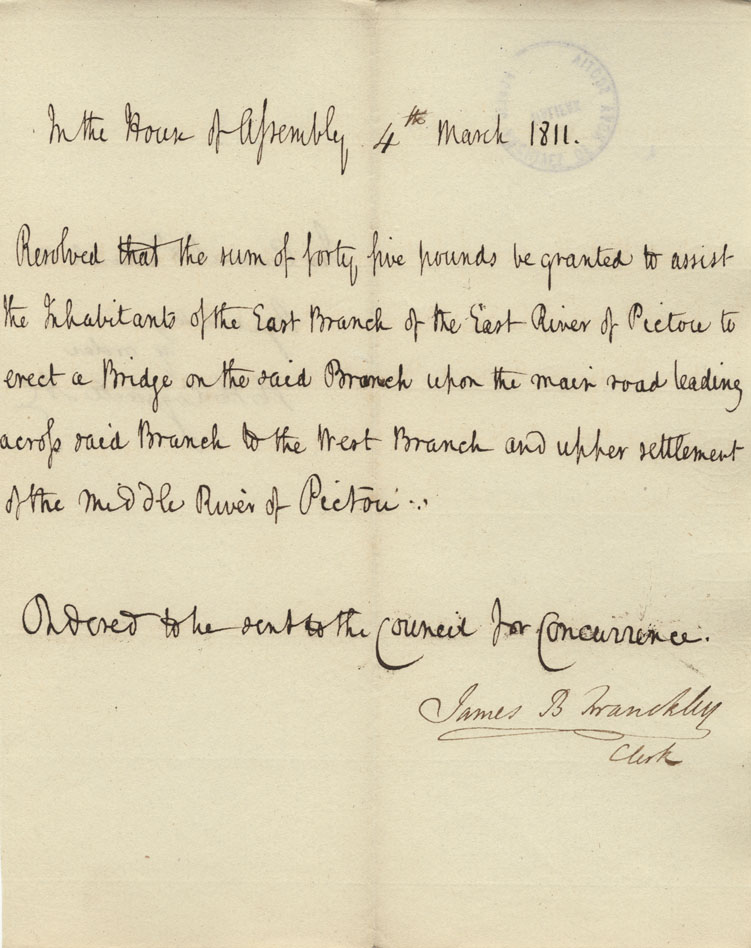 In the House of Assembly 4th March 1811.
Resolved that the sum of forty five pounds be granted to assist
the Inhabitants of the East Branch of the East River of Pictou to
erect a Bridge on the said Branch upon the main road leading
across said Branch to the West Branch and upper settlement
of the Middle River of Pictou
Ordered to be sent to the Council for Concurrence.
James B Franckley
Clerk